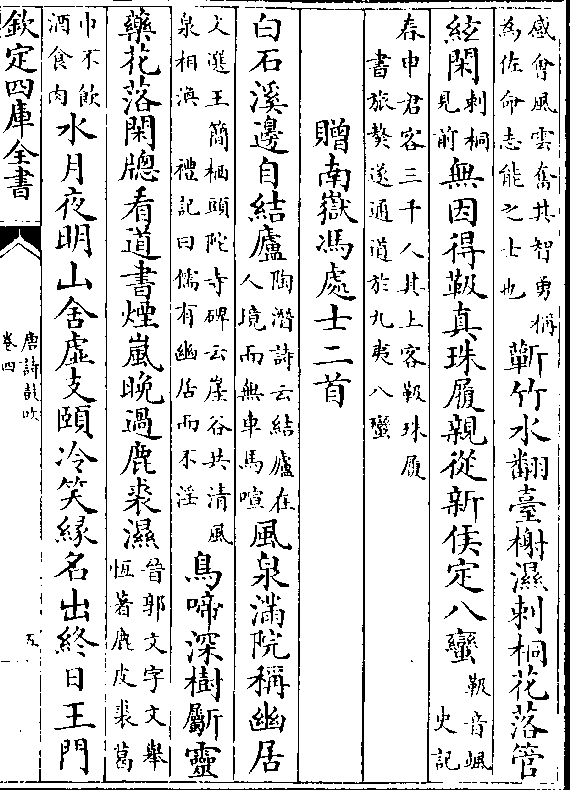 感會風雲奮其智勇稱
為佐命志能之士也
蘄竹水翻臺榭濕刺桐花落管
絃閑
刺桐
見前
無因得靸真珠履親從新侯定八蠻
靸音颯
史記
春申君客三千人其上客靸珠履
書旅獒遂通道於九夷八蠻
贈南嶽馮處士二首
白石溪邊自結廬
陶潛詩云結廬在
人境而無車馬喧
風泉滿院稱幽居
文選王簡栖頭陀寺碑云崖谷共清風
泉相渙 禮記曰儒有幽居而不淫
鳥啼深樹斸靈
藥花落閑牕看道書煙嵐晚過鹿裘濕
晉郭文字文舉
恆著鹿皮裘葛
巾不飲
酒食肉
水月夜明山舍虛支頤冷笑緣名出終日王門
欽定四庫全書
唐詩鼓吹
卷四
五